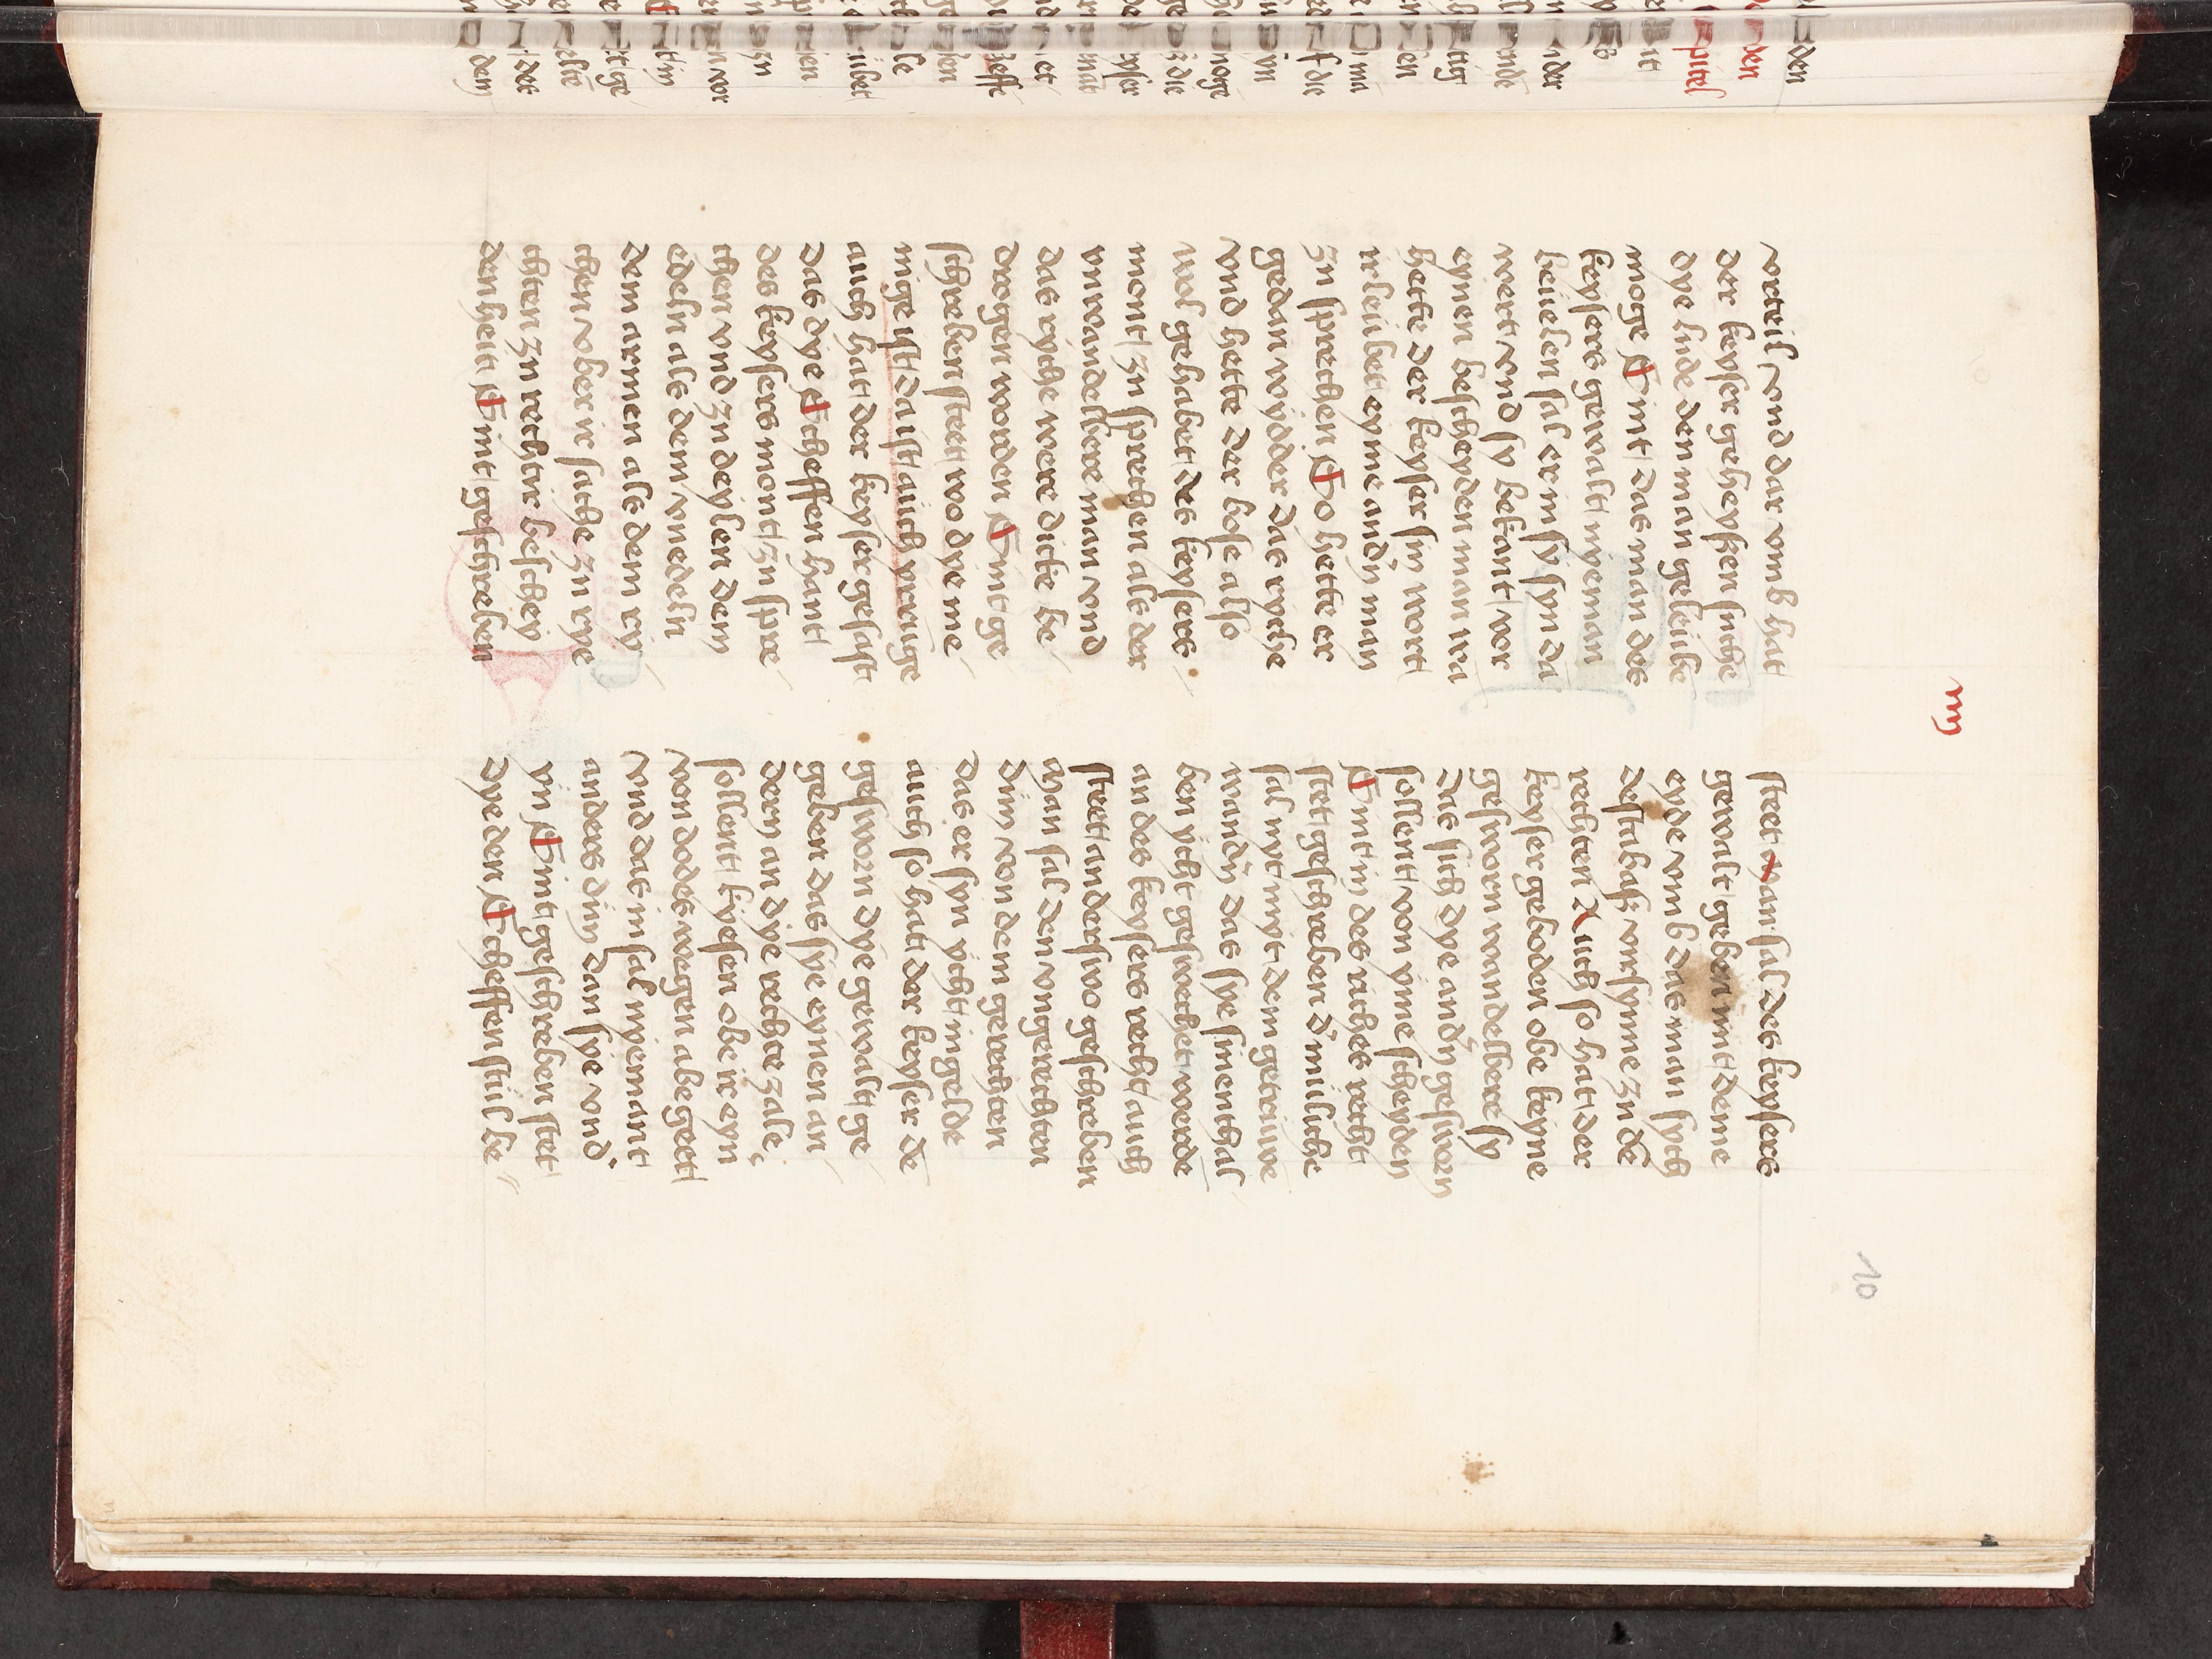 iiij
10
vrteil vnd dar vmb hat
der keyser geheyßen suche
dye lude den man geleube
moge Sint das man des
keysers gewalt nyeman
beuelen sal er in sy syn da
wert vnd sy bekant vor
eynen bescheyden man wa
hette der keyser sin wort
irleubet eyme andn̄ man
zu sprechen So hette er
gedan wydder das ryche
vnd hette der bose also
wol gehabet des keysers
mont zu sprechen als der
vnwandelbere man vnd
das ryche were dicke be
drogen worden Sint ge
schreben steet wo dye me
nige ist da ist auch vrruge
auch hat der keyser gesast
das dye Scheffen hant
des keysers mont zu spre
chen vnd zu deylen dem
edeln als dem vnedeln
dem armen als dem ry
chen vber ir sache zu rye
chten zu rechter beschey
denheit Sint geschreben
steet Man sal des keysers
gewalt geben nunt deme
eyde vmb das man sych
destabaß vorsynne zu dē
rechten Auch so hat der
keyser geboden obe keyne
gesworn wandelbere sy
das sich dye andn̄ gesworn
sollent von yme scheyden
Sint in des riches recht
stet geschreben d' milche
sal nyt myt dem getruwe
wandn̄ das sye sinenthal
ben ycht geswechet werde
an des keysers recht auch
steet anderswo geschreben
Man sal den vngerechten
dun von dem gerechten
das er syn ycht ingelde
auch so hat der keyser dē
gesworn dye gewalt ge
geben das sye eynen an
dern an dye rechte zale
sollent kyesen obe ir eyn
von dodes wegen abegeet
vnd das in sal nyemant
anders dun dan sye vnd
yn Sint geschreben stet
dye den Scheffen stul be